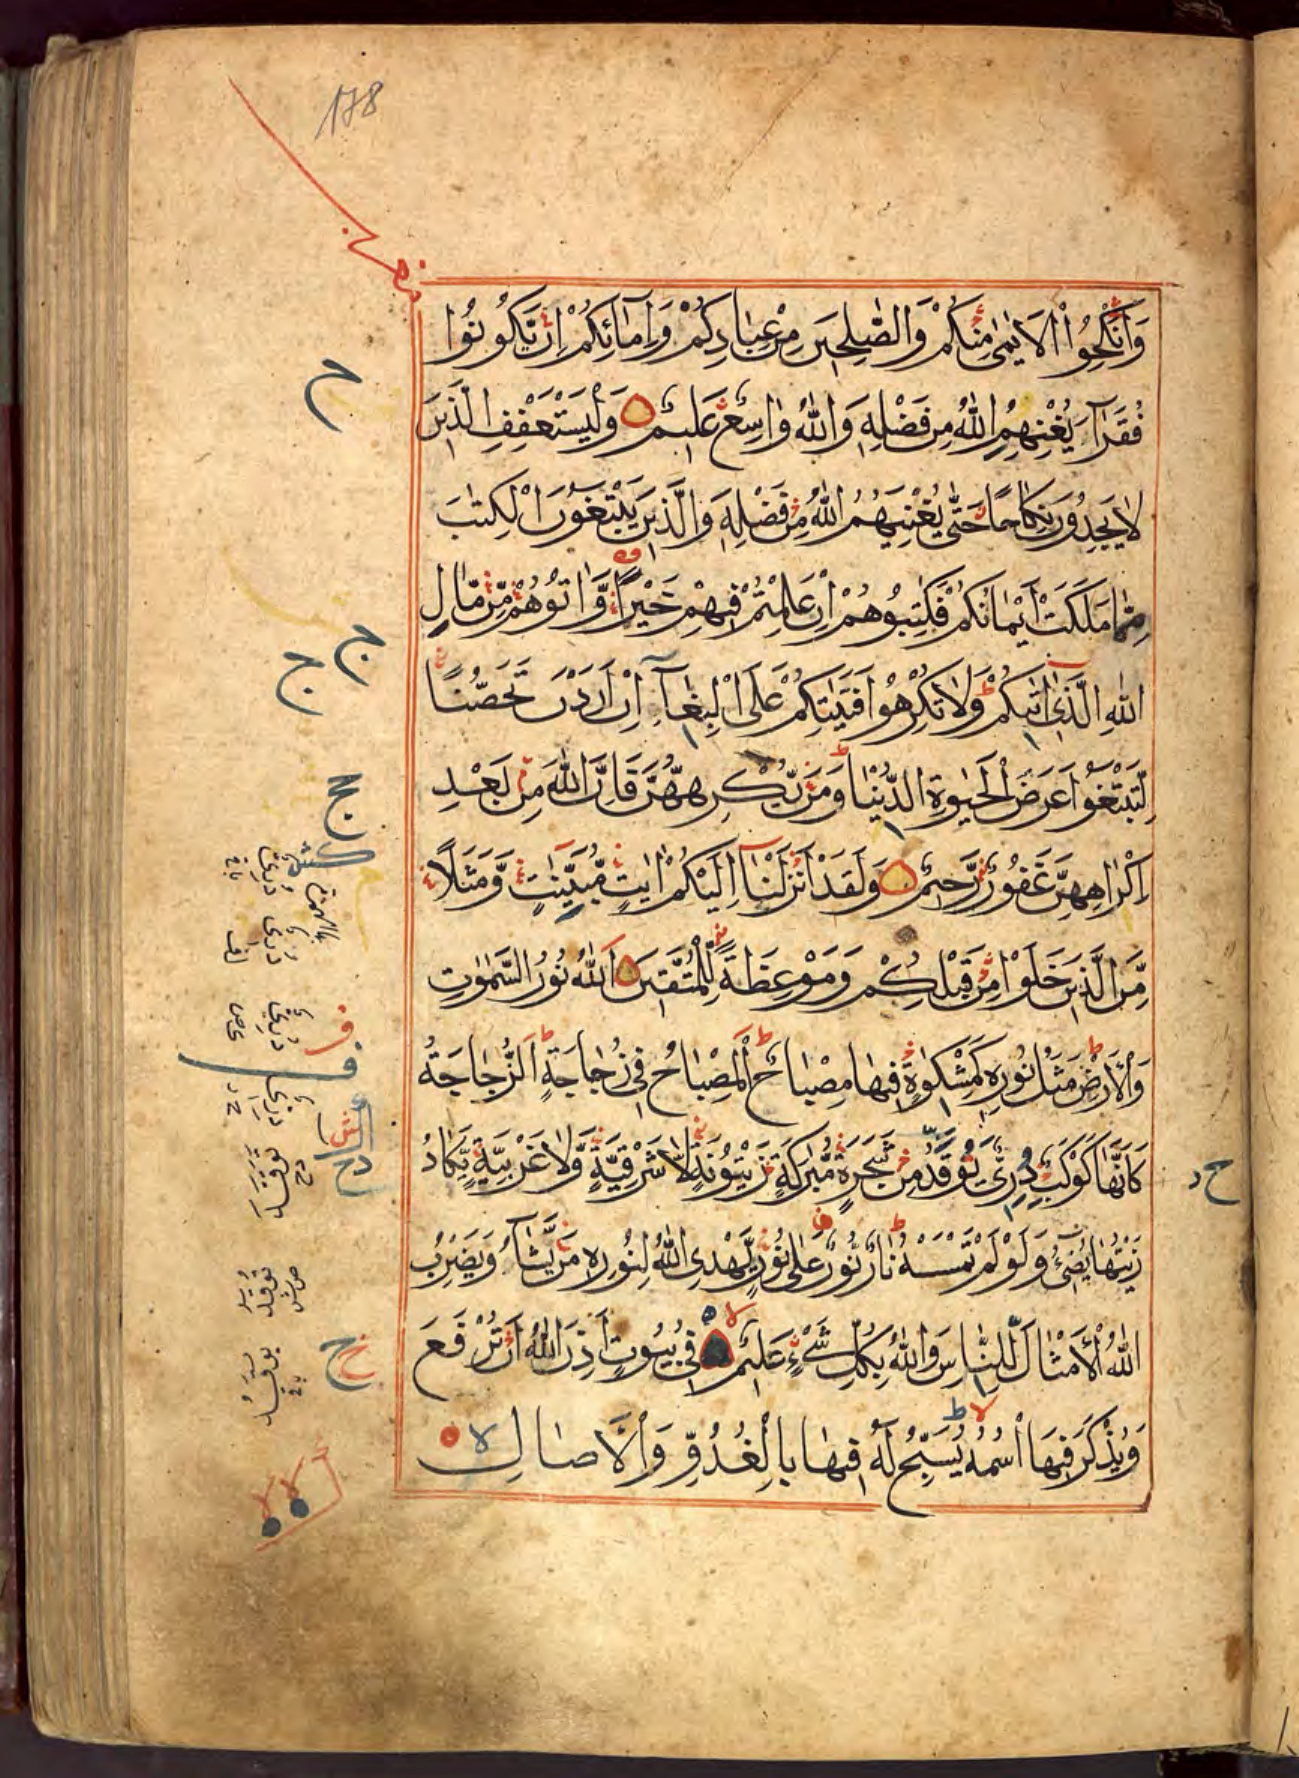 178
وَاَنْكِحُوا الْاَيَامٰى مِنْكُمْ وَالصّٰلِحٖينَ مِنْ عِبَادِكُمْ وَاِمَائِكُمْ اِنْ يَّكُونُوا
فُقَرَآءَ يُغْنِهِمُ اللّٰهُ مِنْ فَضْلِهٖ وَاللّٰهُ وَاسِعٌ عَلٖيمٌ وَلْيَسْتَعْفِفِ الَّذٖينَ
لَا يَجِدُونَ نِكَاحًا حَتّٰى يُغْنِيَهُمُ اللّٰهُ مِنْ فَضْلِهٖ وَالَّذٖينَ يَبْتَغُونَ الْكِتٰبَ
مِمَّا مَلَكَتْ اَيْمَانُكُمْ فَكَاتِبُوهُمْ اِنْ عَلِمْتُمْ فٖيهِمْ خَيْرًا وَّاٰتُوهُمْ مِّنْ مَّالِ
اللّٰهِ الَّذٖى اٰتٰىكُمْ وَلَا تُكْرِهُوا فَتَيٰتِكُمْ عَلَى الْبِغَآءِ اِنْ اَرَدْنَ تَحَصُّنًا
لِّتَبْتَغُوا عَرَضَ الْحَيٰوةِ الدُّنْيَا وَمَنْ يُّكْرِهْهُّنَّ فَاِنَّ اللّٰهَ مِنْ بَعْدِ
اِكْرَاهِهِنَّ غَفُورٌ رَّحٖيمٌ وَلَقَدْ اَنْزَلْنَآ اِلَيْكُمْ اٰيَاتٍ مُّبَيِّنٰتٍ وَّمَثَلًا
مِّنَ الَّذٖينَ خَلَوْا مِنْ قَبْلِكُمْ وَمَوْعِظَةً لِّلْمُتَّقٖينَ اَللّٰهُ نُورُ السَّمٰوٰتِ
وَالْاَرْضِ مَثَلُ نُورِهٖ كَمِشْكٰوةٍ فٖيهَا مِصْبَاحٌ اَلْمِصْبَاحُ فٖى زُجَاجَةٍ اَلزُّجَاجَةُ
كَاَنَّهَا كَوْكَبٌ دُرِّىٌّ يُوقَدُ مِنْ شَجَرَةٍ مُّبٰرَكَةٍ زَيْتُونَةٍ لَّا شَرْقِيَّةٍ وَّلَا غَرْبِيَّةٍ يَّكَادُ
زَيْتُهَا يُضٖٓىءُ وَلَوْ لَمْ تَمْسَسْهُ نَارٌ نُورٌ عَلٰى نُورٍ يَّهْدِى اللّٰهُ لِنُورِهٖ مَنْ يَّشَآءُ وَيَضْرِبُ
اللّٰهُ الْاَمْثَالَ لِلنَّاسِ وَاللّٰهُ بِكُلِّ شَىْءٍ عَلٖيمٌ فٖى بُيُوتٍ اَذِنَ اللّٰهُ اَنْ تُرْفَعَ
وَيُذْكَرَ فٖيهَا اسْمُهُ يُسَبِّحُ لَهُ فٖيهَا بِالْغُدُوِّ وَالْاٰصَالِ